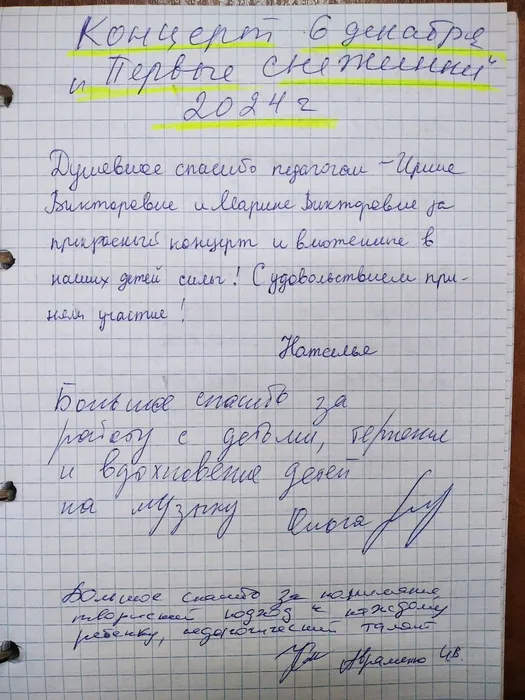 Концерт 6 декабря
"Первые снежинки"
2024 г
Душевное спасибо педагогам – Ирине
Викторовне и Марине Викторовне за
прекрасный концерт и вложенные в
наших детей силы! С удовольствием при-
няли участие!
Наталья
Большое спасибо за
работу с детьми, терпение
и вдохновение детей
на музыку Ольга
Большое спасибо за понимание
творческий подход к каждому
ребенку, педагогический талант